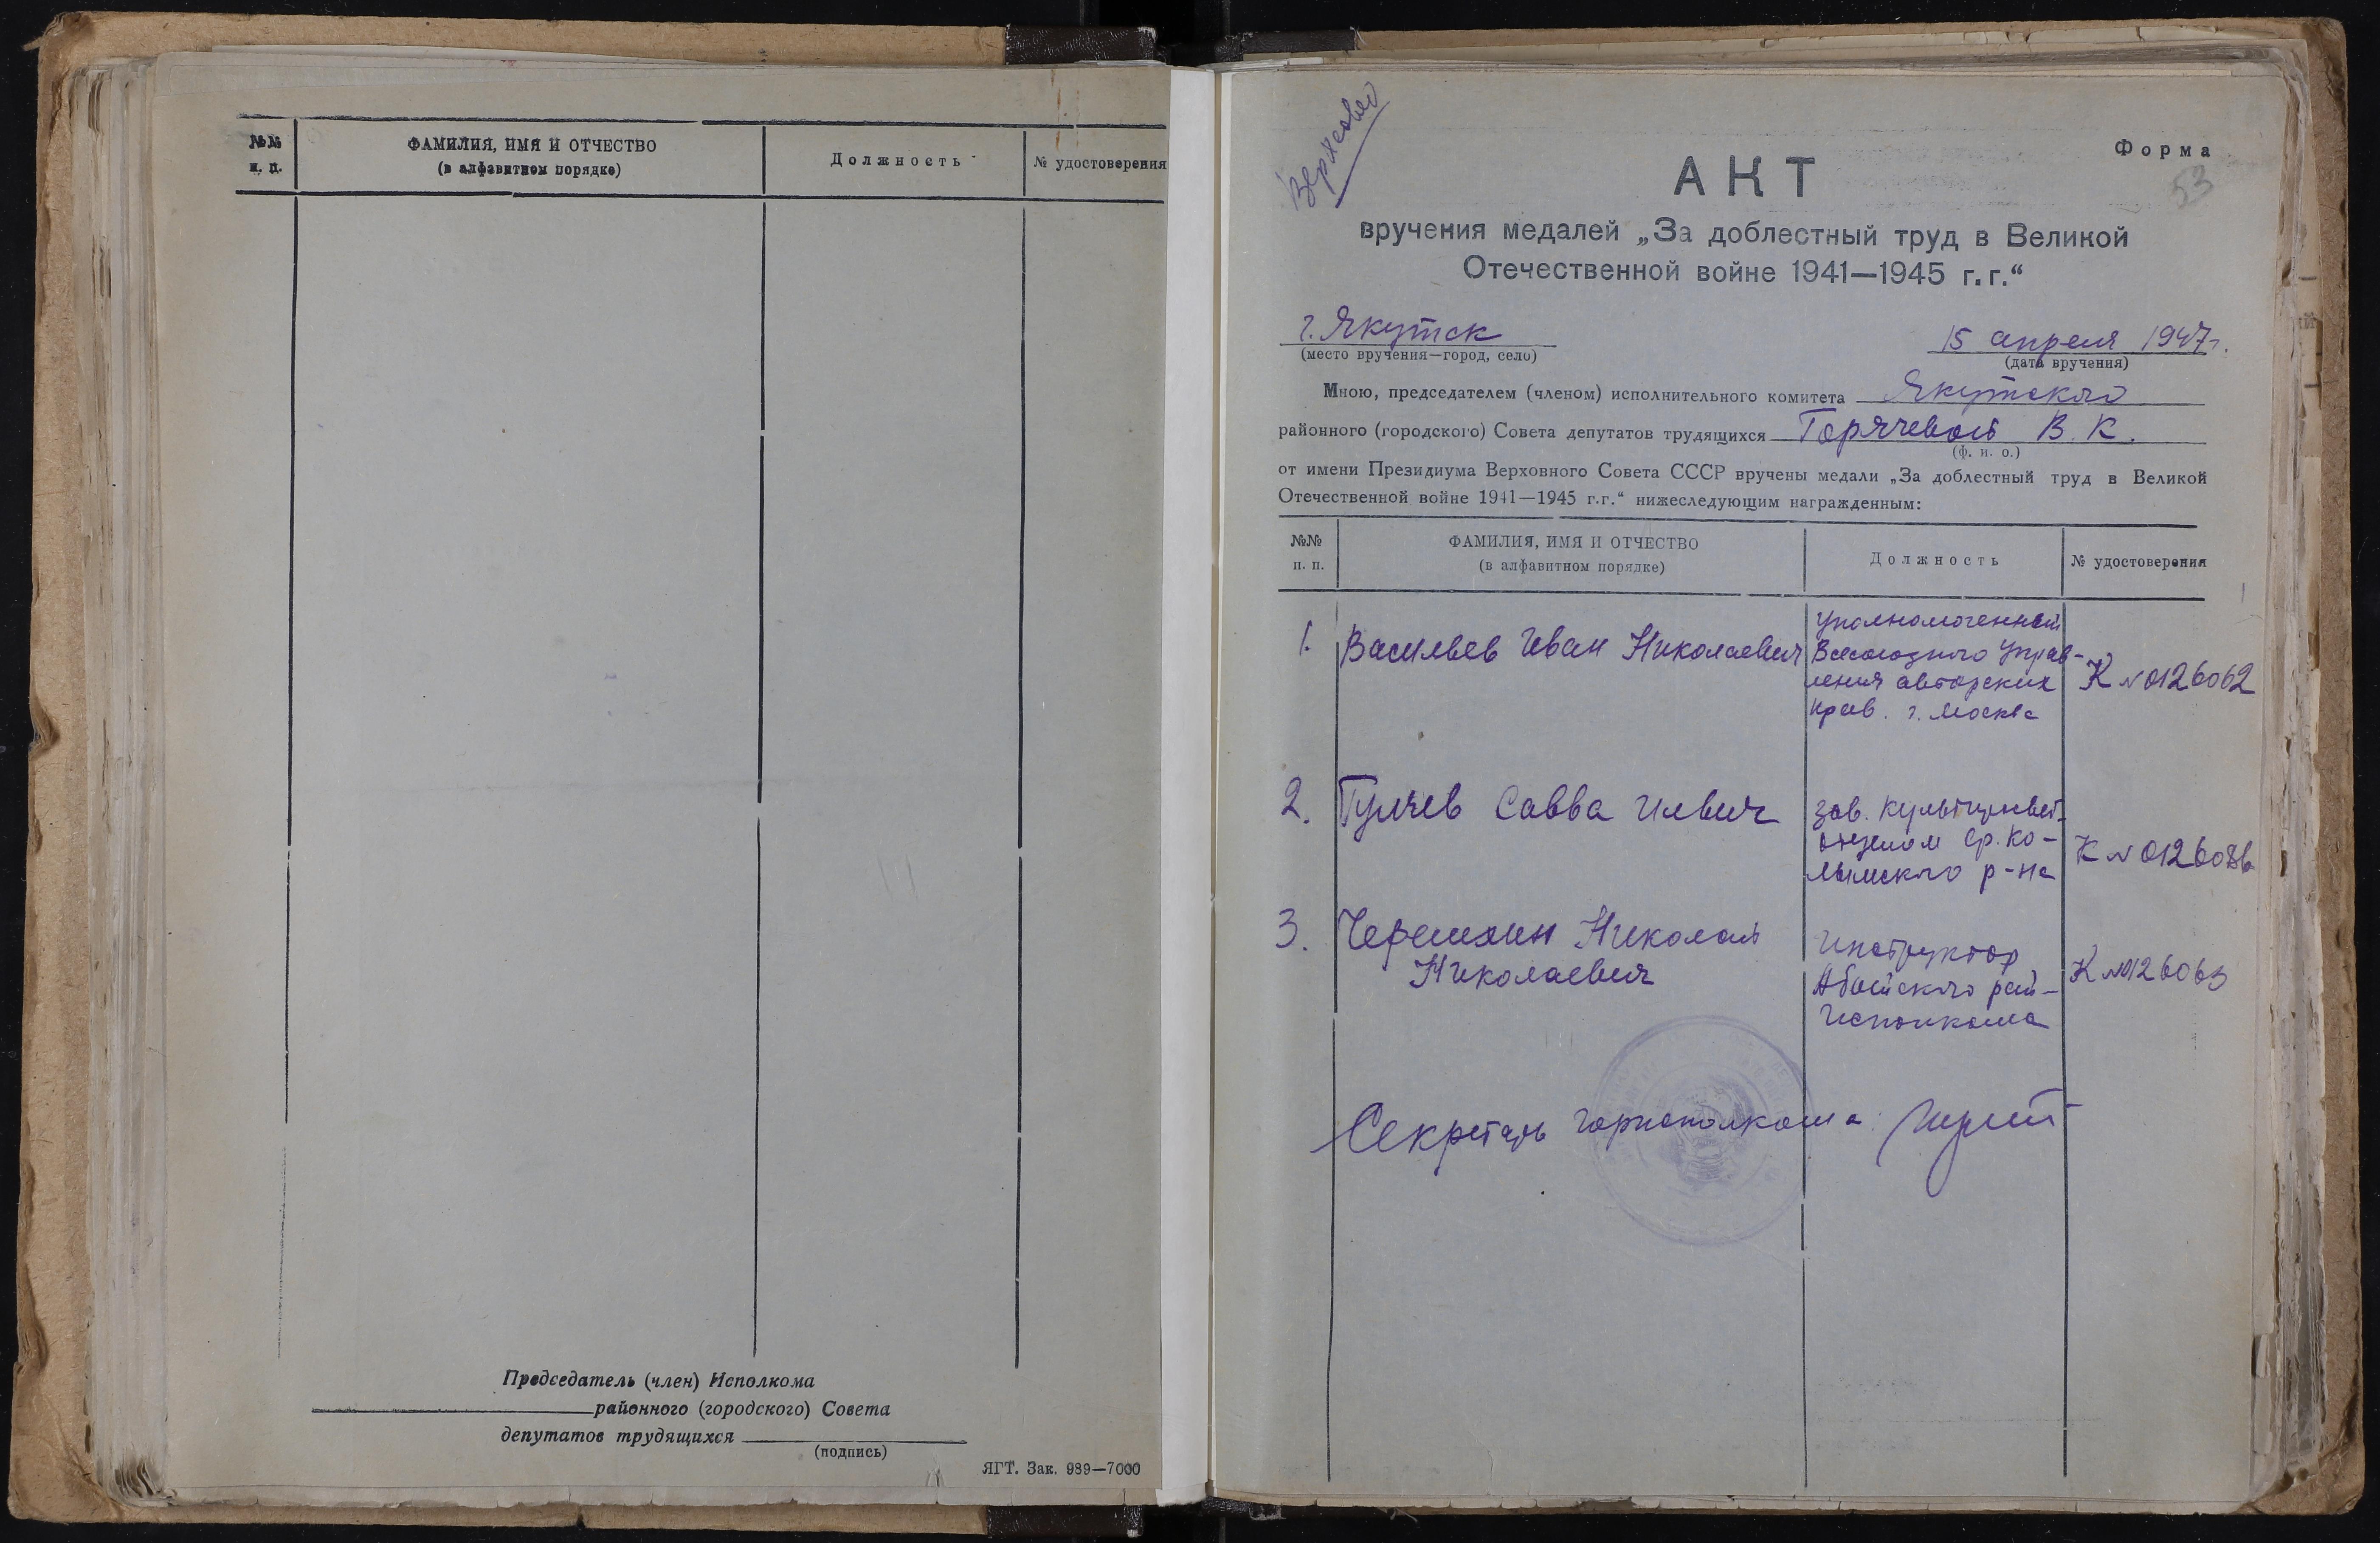 №№
п. п.
ФАМИЛИЯ, ИМЯ И ОТЧЕСТВО
(в алфавитном порядке)
Должность
№ удостоверения
Председатель (член) Исполкома
районного (городского) Совета
депутатов трудящихся
(подпись)
ЯГТ. Зак. 989—7000
Форма
53
АКТ
вручения медалей „За доблестный труд в Великой
Отечественной войне 1941—1945 г.г.“
г. Якутск
(место вручения—город, село)
15 апреля 1947 г.
(дата вручения)
Мною, председателем (членом) исполнительного комитета Якутского
районного (городского) Совета депутатов трудящихся Горячевой В. К.
(ф. и. о.)
от имени Президиума Верховного Совета СССР вручены медали „За доблестный труд в Великой
Отечественной войне 1941—1945 г.г.“ нижеследующим награжденным:
№№
п. п.
ФАМИЛИЯ, ИМЯ И ОТЧЕСТВО
(в алфавитном порядке)
Должность
№ удостоверения
1. Васильев Иван Николаевич
Уполномоченный
Всесоюзного Управ-
ления авторских
прав. г. Москва
К №0126062
2. Савва Ильич
зав.
отделом Ср. Ко-
лымского р-на
К №
3. Николай
Николаевич
Инструктор
Абыйского рай-
исполкома
К №0126063
Секретарь горисполкома